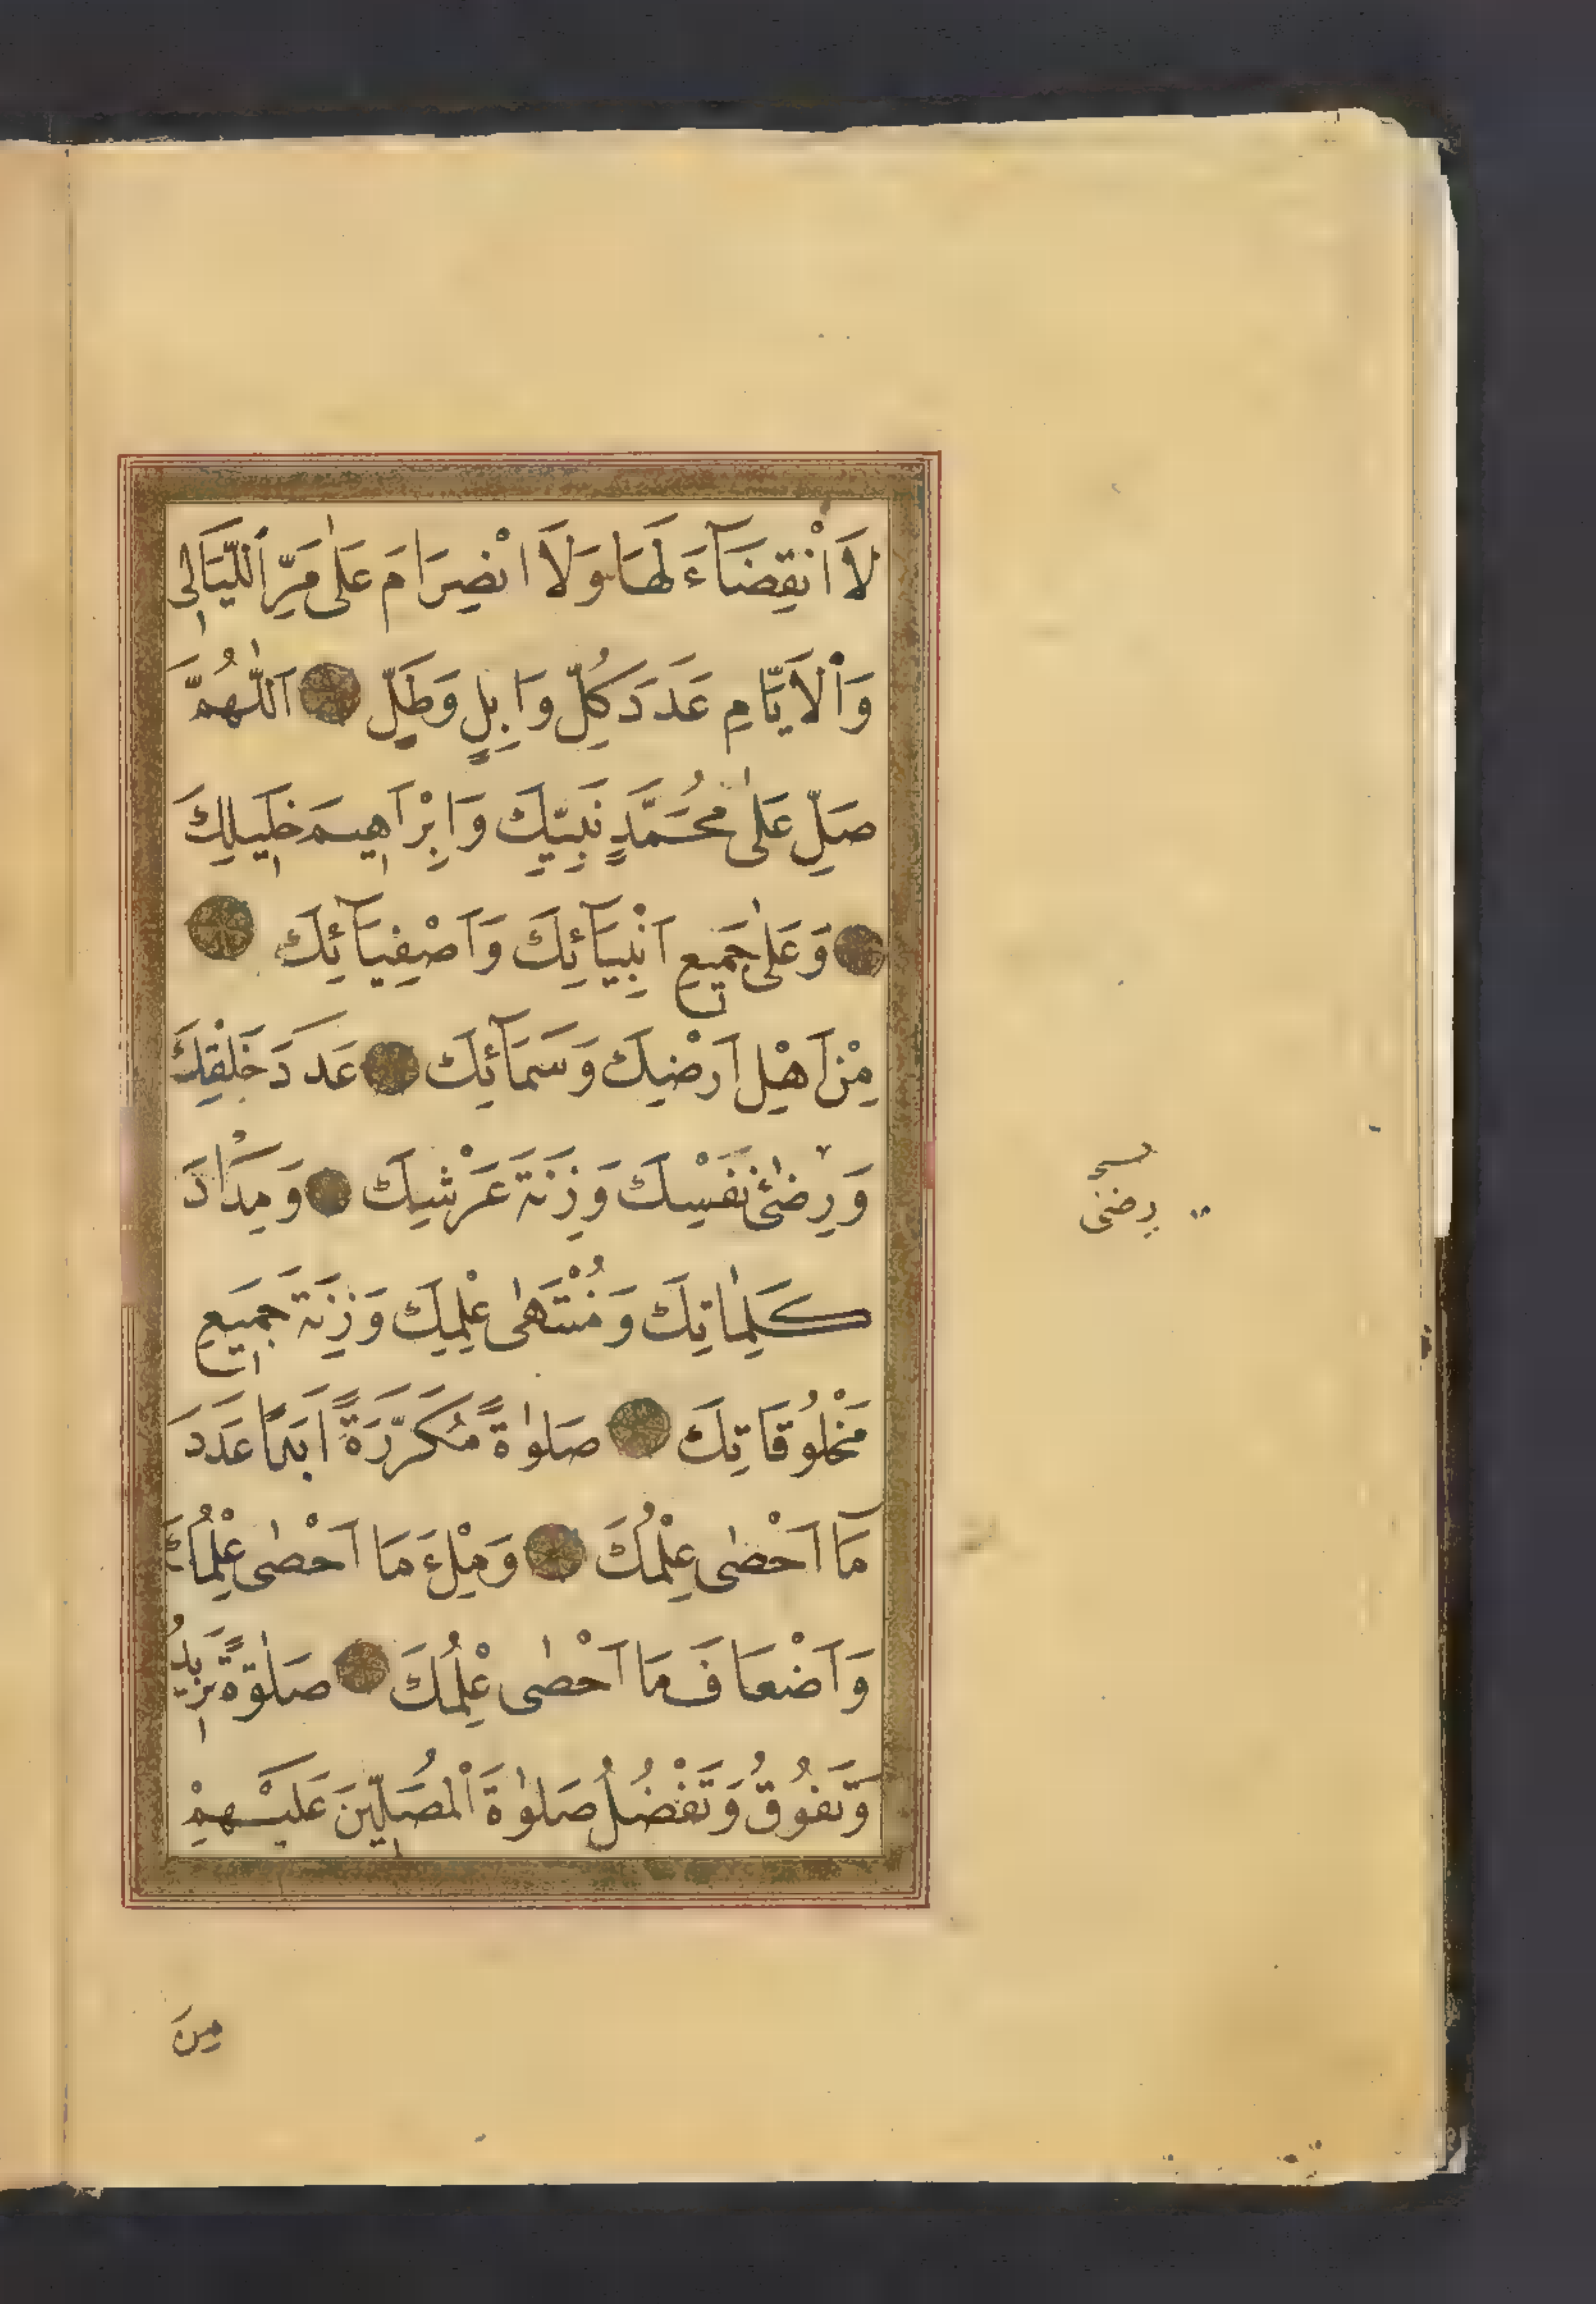 لَا اَنْقِضَآءَ لَهَا وَلَا انْصِرَامَ عَلٰى مَرِّ اَللَّيَالِى
وَاَلْاَيَّامِ عَدَدَ كُلِّ وَابِلٍ وَطَلٍّ اَللّٰهُمَّ
صَلِّ عَلٰى مُحَمَّدٍ نَبِيِّكَ وَاِبْرَاهِيمَ خَلِيلِكَ
وَعَلٰى جَمِيعِ اَنْبِيَآئِكَ وَاَصْفِيَآئِكَ
مِنْ اَهْلِ اَرْضِكَ وَسَمَآئِكَ عَدَدَ خَلْقِكَ
وَرِضٰى نَفْسِكَ وَزِنَةَ عَرْشِكَ وَمِدَادَ
كَلِمَاتِكَ وَمُنْتَهٰى عِلْمِكَ وَزِنَةَ جَمِيعِ
مَخْلُوقَاتِكَ صَلٰوةً مُكَرَّرَةً اَبَدًا عَدَدَ
مَآ اَحْصٰى عِلْمُكَ وَمِلْءَ مَا اَحْصٰى عِلْمُكَ
وَاَضْعَافَ مَا اَحْصٰى عِلْمُكَ صَلٰوةً تَزِيدُ
وَتَفُوقُ وَتَفْضُلُ صَلٰوةَ اَلْمُصَلِّينَ عَلَيْهِمْ
رِضٰى
مِنَ